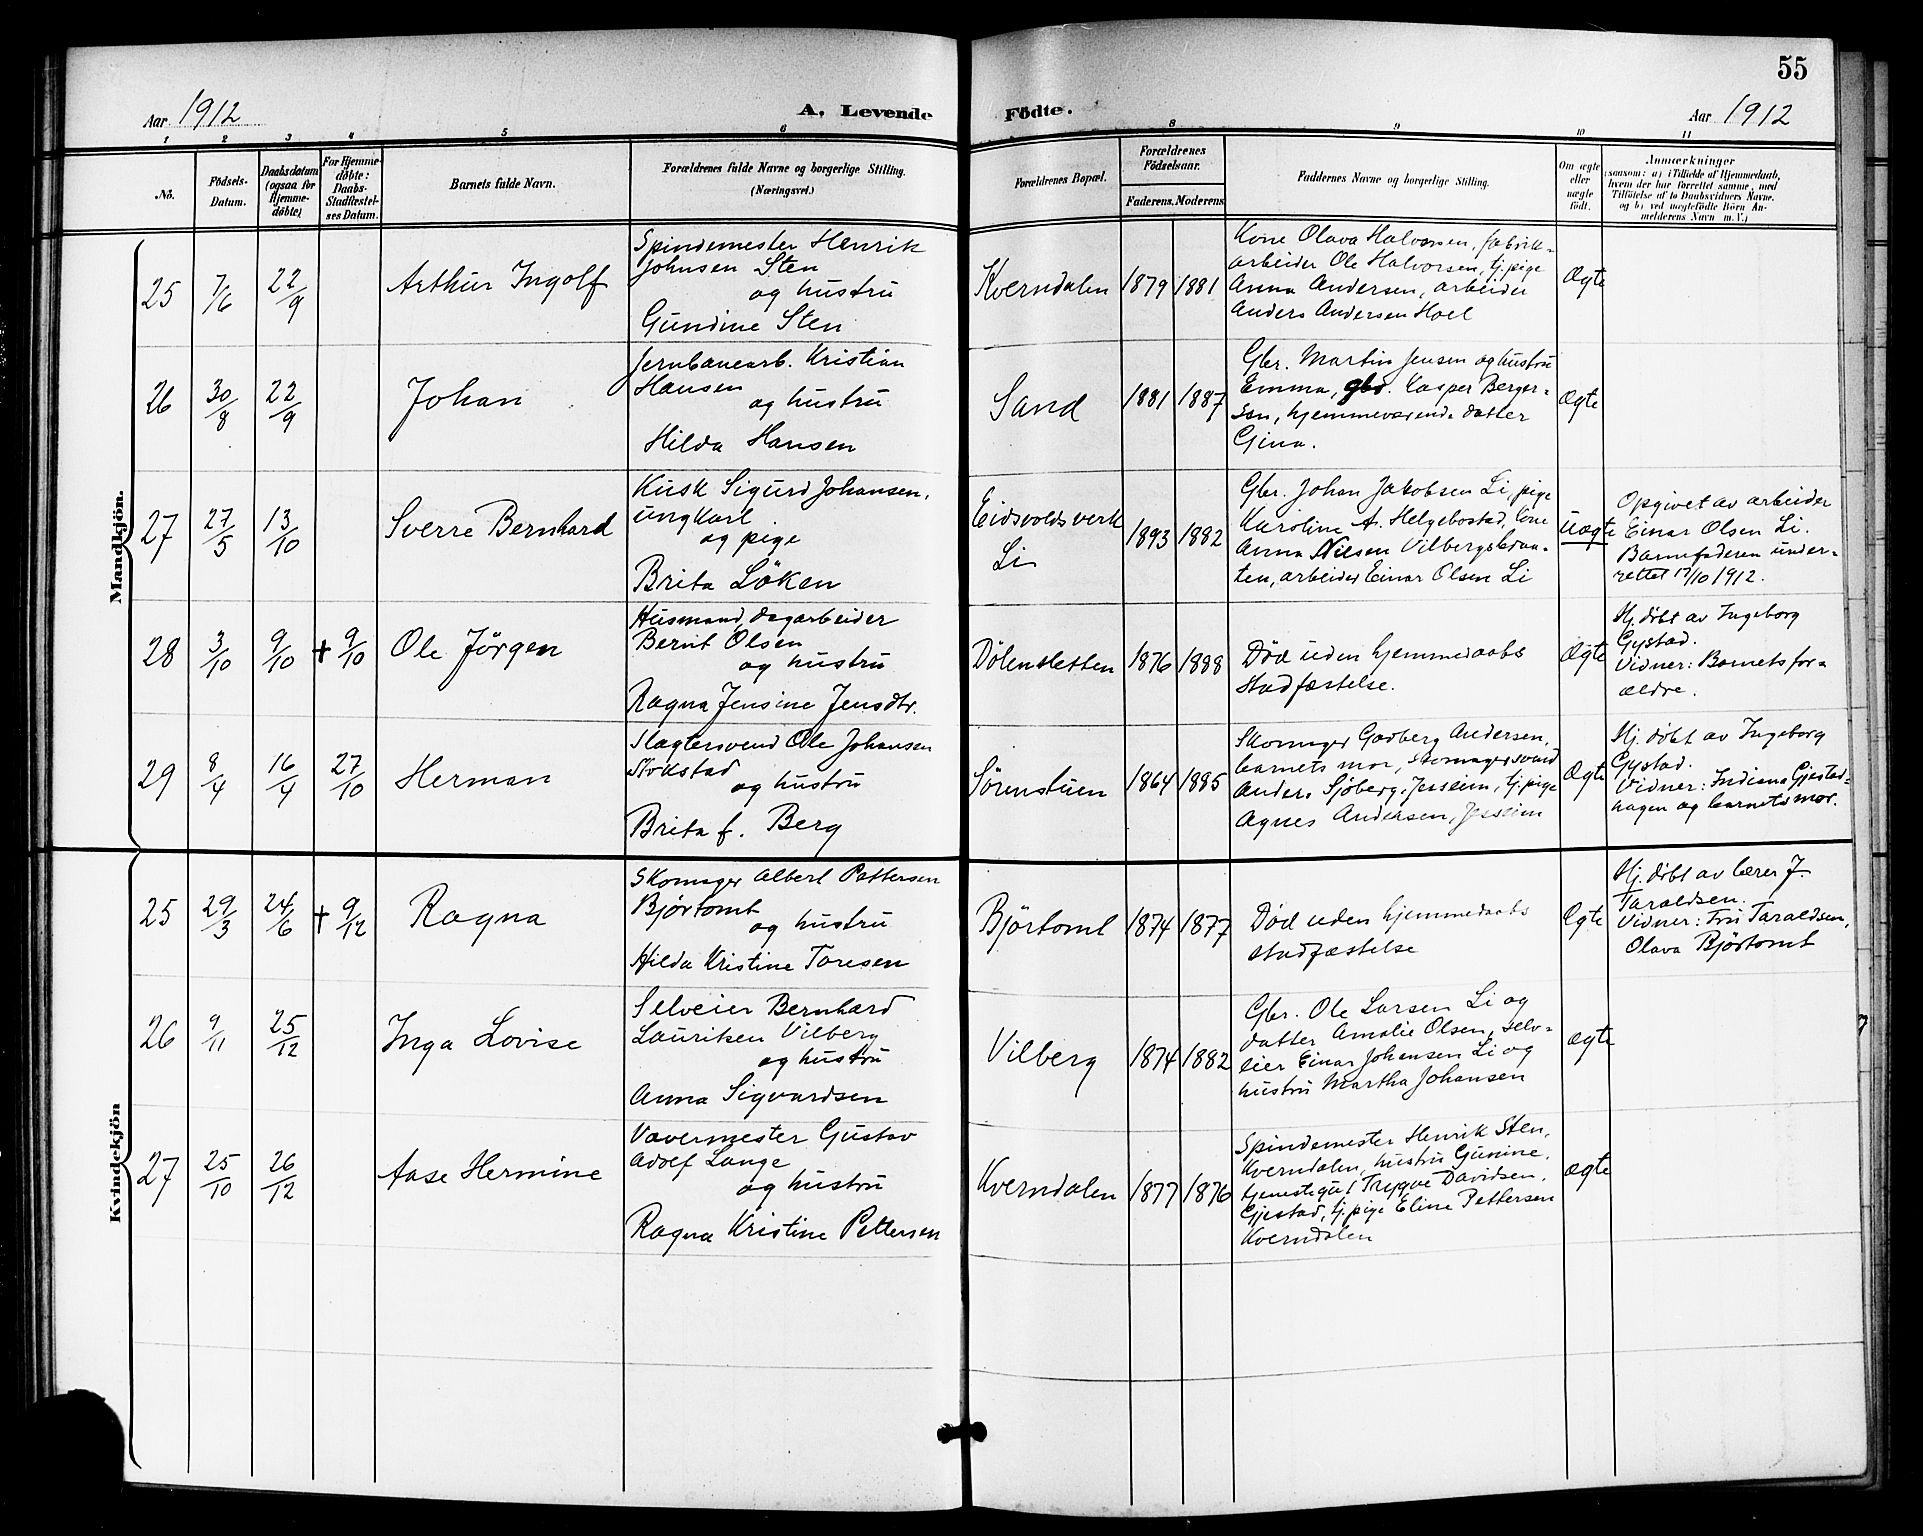 55
Aar 1912
A. Levende
Födte.
Aar 1912
1 2 3 4 5 6 8 9 10 11
No.
Födsels-
Datum.
Daabsdatum
(ogsaa for
Hjemme-
döbte)
For Hjemme-
döbte:
Daabs-
Stadfæstel-
ses Datum.
Barnets fulde Navn.
Forældrenes fulde Navne og borgerlige Stilling.
(Næringsvei.)
Forældrenes Bopæl.
Forældrenes
Födselsaar.
Faderens. Moderens
Faddernes Navne og borgerlige Stilling.
Om ægte
eller
uægte
födt.
Anmærkninger
(saasom: a) i Tilfælde af Hjemmedaab,
hvem der har forrettet samme, med
Tilföielse af to Daabsvidners Navne.
og b) ved uægtefödte Börn An-
melderens Navn m. V.)
Mandkjön.
25 7/6 22/9
Arthur Ingolf
Spindemester Henrik
Johnsen Sten
og hustru
Gundine Sten
Kverndalen 1879 1881
Kone Olava Halvorsen, fabrik-
arbeider Ole Halvorsen, tj. pige
Anna Andersen, arbeider
Anders Andersen Hoel
Ægte
26 30/8 22/9
Johan
Jernbanearb. Kristian
Hansen
og hustru
Hilda Hansen
Sand 1881 1887
Gbr. Martin Jensen og hustru
Emma, gbr. Kasper Berger-
sen, hjemmeværende datter
Gina.
Ægte
27 27/5 13/10
Sverre Bernhard
Kusk Sigurd Johansen,
ungkarl
og pige
Brita Löken
Eidsvolds verk
Li
1893 1882
Gbr. Johan Jakobsen Li, pige
Karoline A. Helgebostad, kone
Anna Nilsen Vilbergsbraa-
ten, arbeider Einar Olsen Li
Uægte
Opgivet av arbeider
Einar Olsen Li.
Barnefaderen under-
rettet 17/10 1912.
28 3/10 9/10 + 9/10
Ole Jörgen
Husmand, dagarbeider
Bernt Olsen
og hustru
Ragna Jensine Jensdtr.
Dölensletten 1876 1888
Död uden hjemmedaabs
stadfæstelse.
Ægte
Hj. döbt av Ingeborg
Gystad.
Vidner: Barnets for-
ældre.
29 8/4 16/4 27/10
Herman
Slagtersvend Ole Johansen
Stokstad
og hustru
Brita f. Berg
Sörenstuen 1864 1885
Skomager Godberg Andersen,
barnets mor, skomagersvend
Anders Sjöberg, Jesseim, tj. pige
Agnes Andersen, Jesseim
Ægte
Hj. döbt av Ingeborg
Gystad.
Vidner: Indiana Gjestad-
hagen og barnets mor.
Kvindekjön
25 29/3 24/6 + 9/12
Ragna
Skomager Albert Pettersen
Björtomt
og hustru
Hilda Kristine Toresen
Björtomt 1874 1877
Död uden hjemmedaabs
stadfæstelse
Ægte
Hj. döbt av lærer J.
Taraldsen.
Vidner: Fru Taraldsen,
Olava Björtomt
26 9/11 25/12
Inga Lovise
Selveier Bernhard
Lauritsen Vilberg
og hustru
Anna Sigvardsen
Vilberg 1874 1882
Gbr. Ole Larsen Li og
datter Amalie Olsen, selv-
eier Einar Johansen Li og
hustru Martha Johansen
ægte
27 25/10 26/12
Aase Hermine
Vævermester Gustav
Adolf Lange
og hustru
Ragna Kristine Pettersen
Kverndalen 1877 1876
Spindemester Henrik Sten,
Kverndalen, hustru Gunine,
tjenestegut Trygve Davidsen,
Gjestad, tj. pige Eline Pettersen
Kverndalen
ægte